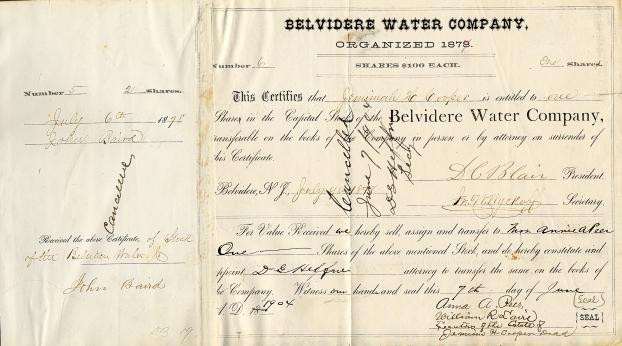 Number 5 2 Shares.
July 6th 1898
Baird
Cancelled
Received the above Certificate, of Stock
of the Belvidere Water Co
John Baird
BELVIDERE WATER COMPANY,
ORGANIZED 1878.
Number 6 SHARES $100 EACH. One Shares
This Certifies that Jemimah H Cooper is entitled to one
Shares in the Capital Stock of the Belvidere Water Company,
transferable on the books of the Company in person or by attorney on surrender of
this Certificate.
D C Blair President.
Belvidere, N. J., July
Secretary.
Cancelled
June 7th
Secy
For Value Received we hereby sell, assign and transfer to Annie A Peer
One Shares of the above mentioned Stock, and do hereby constitute and
appoint attorney to transfer the same on the books of
the Company. Witness our hands and seal this 7th day of June
A D. 1904
Anna A. Peer (Seal)
William R (SEAL)
Executors of the Estate of
Jemima H Cooper Decd